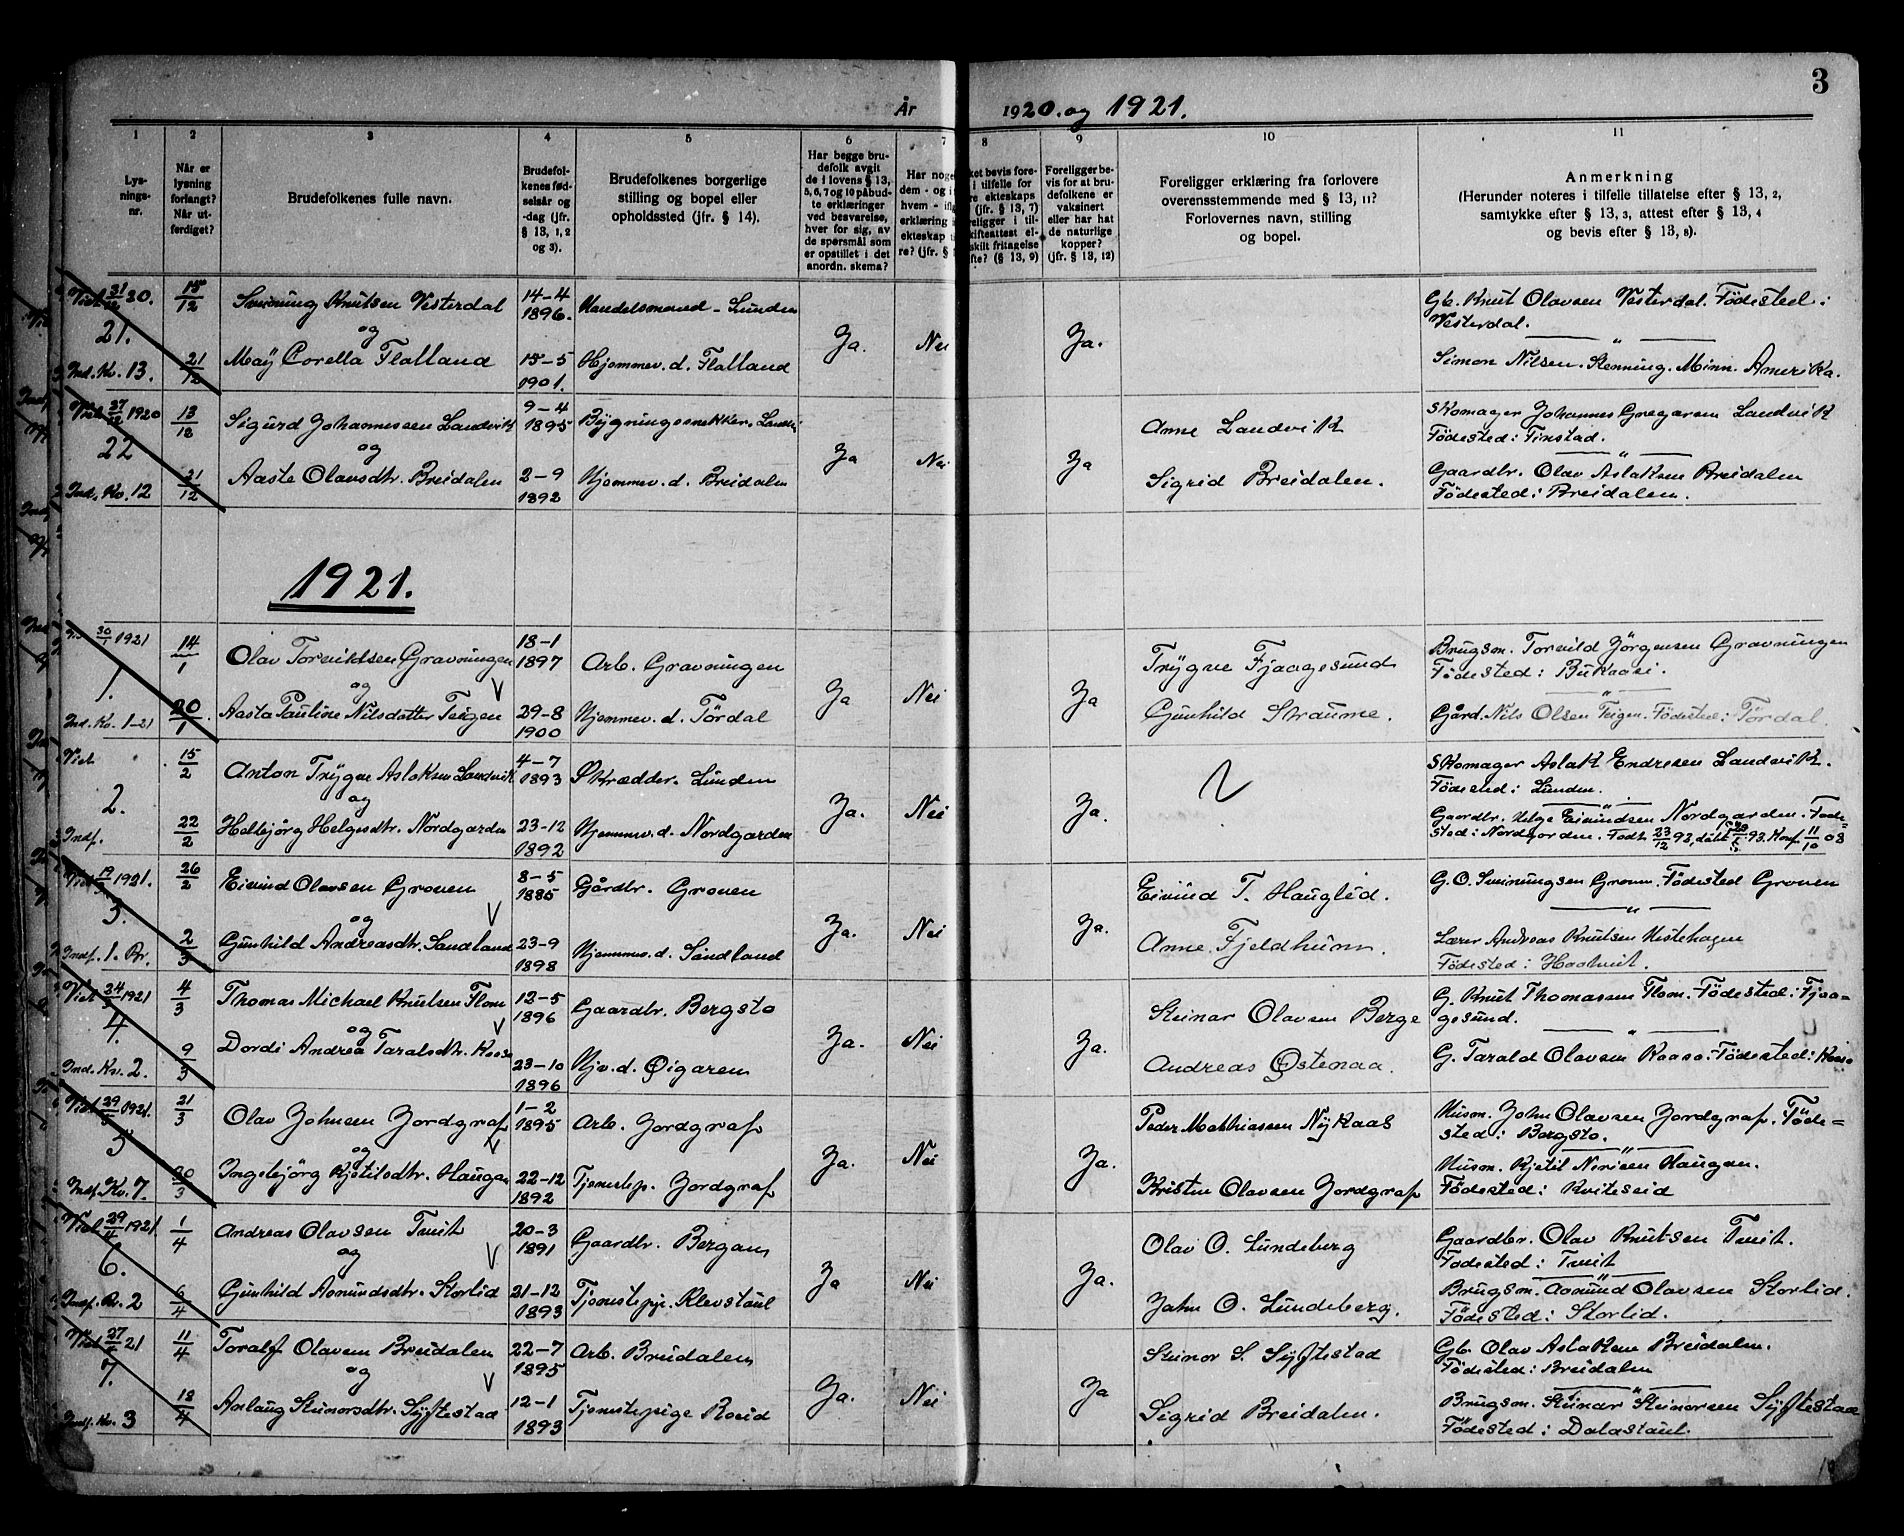 3
År 1920. og 1921.
1 2 3 4 5 6 7 8 9 10 11
Lys-
nings-
nr.
Når er
lysning
forlangt?
Når ut-
ferdiget?
Brudefolkenes fulle navn.
Brudefol-
kenes fød-
selsår og
-dag (jfr.
§ 13, 1, 2
og 3).
Brudefolkenes borgerlige
stilling og bopel eller
opholdssted (jfr. § 14).
Har begge bru-
defolk avgit
de i lovens § 13,
5, 6, 7 og 10 påbud-
te erklæringer
ved besvarelse,
hver for sig, av
de spørsmål som
er opstillet i det
anordn. skema?
Har noge
dem - og i
hvem - ifl
erklæring i
ekteskap ti
re? (jfr. §
ket bevis fore-
i tilfelle for
re ekteskaps
(jfr. § 13, 7)
religger i til-
kifteattest el-
skilt fritagelse
fte? (§ 13, 9)
Foreligger be-
vis for at bru-
defolkene er
vaksinert
eller har hat
de naturlige
kopper?
(jfr. § 13, 12)
Foreligger erklæring fra forlovere
overensstemmende med § 13, 11?
Forlovernes navn, stilling
og bopel.
Anmerkning
(Herunder noteres i tilfelle tillatelse efter § 13, 2,
samtykke efter § 13, 3, attest efter § 13, 4
og bevis efter § 13, 8).
Viet 31/12 20. 15/12 Sveinung Knutsen Vesterdal 14-4 1896. Handelsmand - Lunden Gb. Knut Olavsen Vesterdal. Fødested:
Vesterdal.
21. og Ja. Nei Ja.
Ind. Kv. 13. 21/12 Maÿ Corella Flatland 15-5 1901. Hjemmev. d. Flatland Simon Nilsen. Kenning. Minn. Amerika.
Viet 27/12 1920 13/18 Sigurd Johannessen Landvik 9-4 1895 Bygningssnekker. Skomager Johannes Gregarsen Landvik
Anne Landvik Fødested: Tinstad.
22 og Ja Nei Ja
Ind. Kv. 12 21/12 Aaste Olavsdtr. Breidalen 2-9 1892 Hjemmev. d. Breidalen Sigrid Breidalen. Gaardbr. Olav Aslaksen Breidalen
Fødested: Breidalen.
1921.
30/1 1921 14/1 Olav Torvildsen Gravningen 18-1 1897 Arb. Gravningen Trygve Fjaagesund Brugsm. Torvild Jörgensen Gravningen
Fødested: Bukaasi.
1. og Ja Nei Ja
Ind. Kv. 1-21 20/1 Aasta Pauline Nilsdatter Teigen 29-8 1900 Hjemmev. d. Tördal Gunhild Straume. Gård. Nils Olsen Teigen. Fødested: Tördal.
Viet 15/2 Anton Trygve Aslaksen Landvik 4-7 1893 Skrædder. Lunden Skomager Aslak Endresen Landvik.
Fødested: Lunden.
2. og Ja. Nei Ja.
Indf. 22/2 Helbjörg Helgesdtr. Nordgarden 23-12 1892 Hjemmev. d. Nordgarden Gaardbr. Helge Eivindsen Nordgarden. Føde-
sted: Nordgarden. Født 23/12 92, döbt 93. Konf. 11/10 08
Viet 19/3 1921. 26/2 Eivind Olavsen Groven 8-5 1885 Gårdbr. Groven Eivind T. Hauglid. G. O. Sveinungsen Groven. Fødested Groven
3. og Ja. Nei Ja.
Indf. 1. Br. 2/3 Gunhild Andreasdtr. Sandland 23-9 1898 Hjemmev. d. Sandland Anne Fjeldhunn. Lærer Andreas Knutsen Hestehagen
Fødested: Haatveit.
Viet 24/3 1921 4/3 Thomas Michael Knutsen Flom 12-5 1896 Gaardbr. Bergsto Steinar Olavsen Berge G. Knut Thomassen Flom. Fødested: Fjaa-
gesund.
4. og Ja. Nei Ja.
Ind. Kv. 2. 9/3 Dordi Andrea Taraldsdtr. Kaasa 23-10 1896 Hjv. d. Øigaren Andreas Østenaa. G. Tarald Olavsen Kaasa. Fødested: Kaasa
Viet 29/3 1921. 21/3 Olav Johnsen Jordgraf 1-2 1895 Arb. Jordgraf Peder Matthiassen Nykaas Husm. John Olavsen Jordgraf. Føde-
sted: Bergsto.
5 og Ja. Nei Ja.
Indf. Kv. 7. 30/3 Ingebjörg Kjetilsdtr. Haugan 22-12 1892 Tjenestep. Jordgraf Kristen Olavsen Jordgraf Husm. Kjetil Nerisen Haugan.
Fødested: Kviteseid
Viet 29/4 1921. 1/4 Andreas Olavsen Tveit 20-3 1891 Gaardbr. Bergan Olav O. Lundeberg Gaardbr. Olav Knutsen Tveit.
Fødested: Tveit
6. og Ja Nei Ja.
Indf. Br. 2 6/4 Gunhild Aamundsdtr. Storlid 21-12 1893 Tjenestepi. Klevstaul John O. Lundeberg. Brugsm. Aamund Olavsen Storlid.
Fødested: Storlid.
Viet 27/4 21 11/4 Toralf Olavsen Breidalen 22-7 1895 Arb. Breidalen Steinar S. Syftestad Gb. Olav Aslaksen Breidalen.
Fødested: Breidalen
7. og Ja. Nei Ja
Indf. Kv. 3 18/4 Anlaug Steinarsdtr. Syftestad 12-1 1893 Tjenestepige Roeid Sigrid Breidalen. Brugsm. Steinar Steinarsen Syftestad
Fødested: Dalastaul.